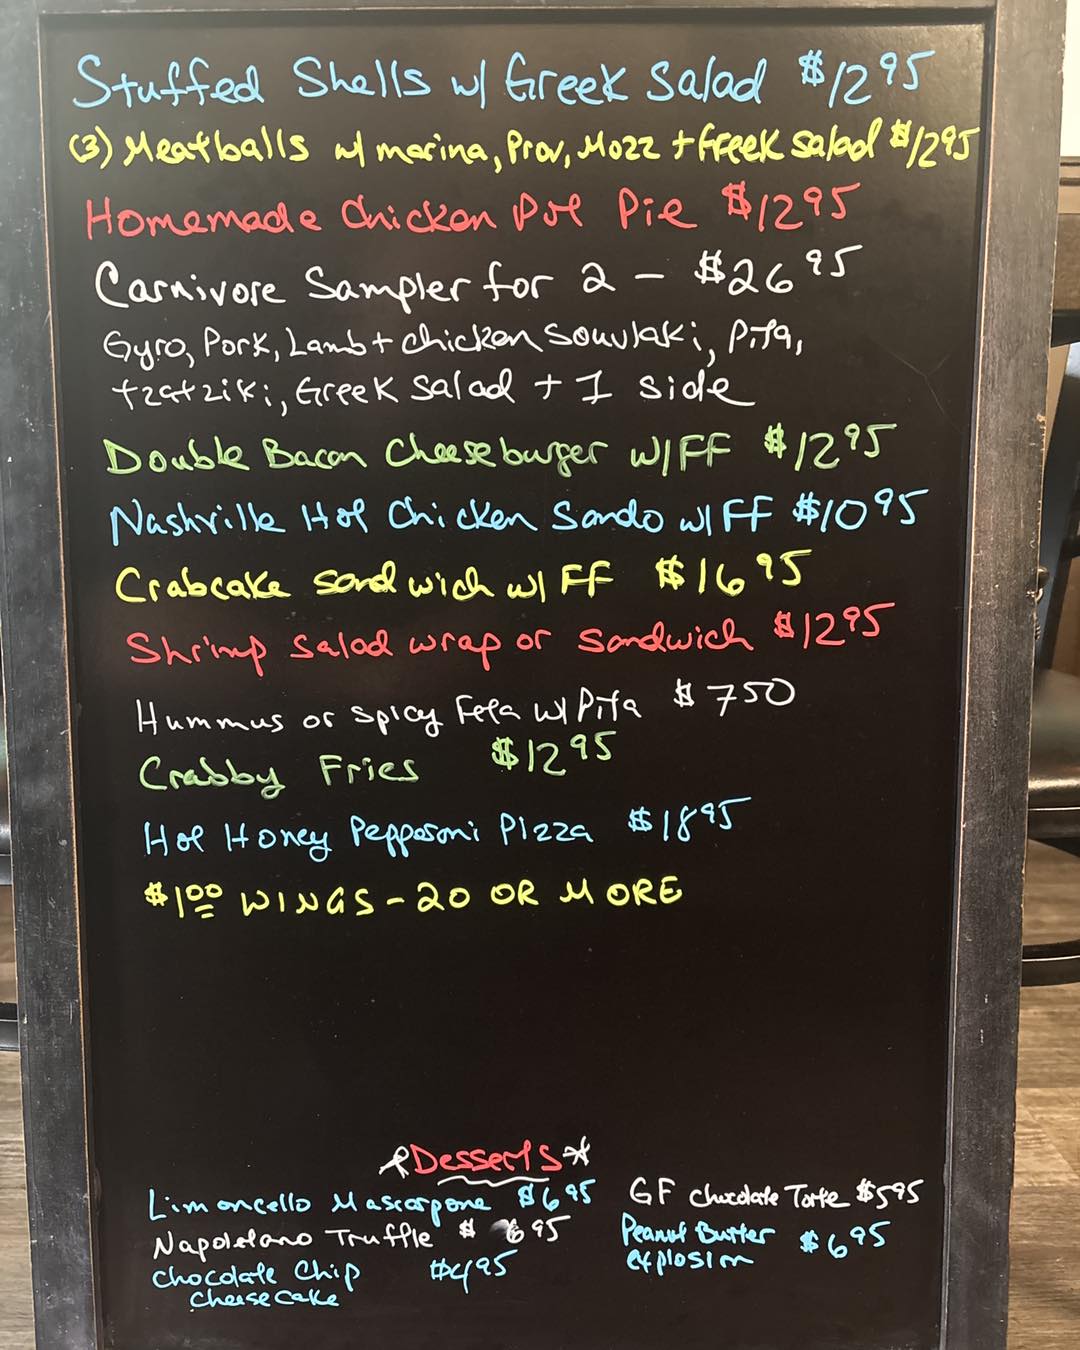 Stuffed Shells w/ Greek Salad $12.95
(3) Meatballs w/ marina, Prov, Mozz + Greek salad $12.95
Homemade Chicken Pot Pie $12.95
Carnivore Sampler for 2 - $26.95
Gyro, Pork, Lamb + chicken souvlaki, Pita,
tzatziki, Greek salad + 1 side
Double Bacon Cheeseburger w/FF $12.95
Nashville Hot Chicken Sando w/ FF $10.95
Crabcake sandwich w/ FF $16.95
Shrimp salad wrap or sandwich $12.95
Hummus or spicy Feta w/ Pita $7.50
Crabby Fries $12.95
Hot Honey Pepperoni Pizza $18.95
$1.00 WINGS - 20 OR MORE
*Desserts*
Limoncello Mascarpone $6.95
Napoletano Truffle $6.95
Chocolate Chip $4.95
Cheesecake
GF Chocolate Torte $5.95
Peanut Butter $6.95
explosion